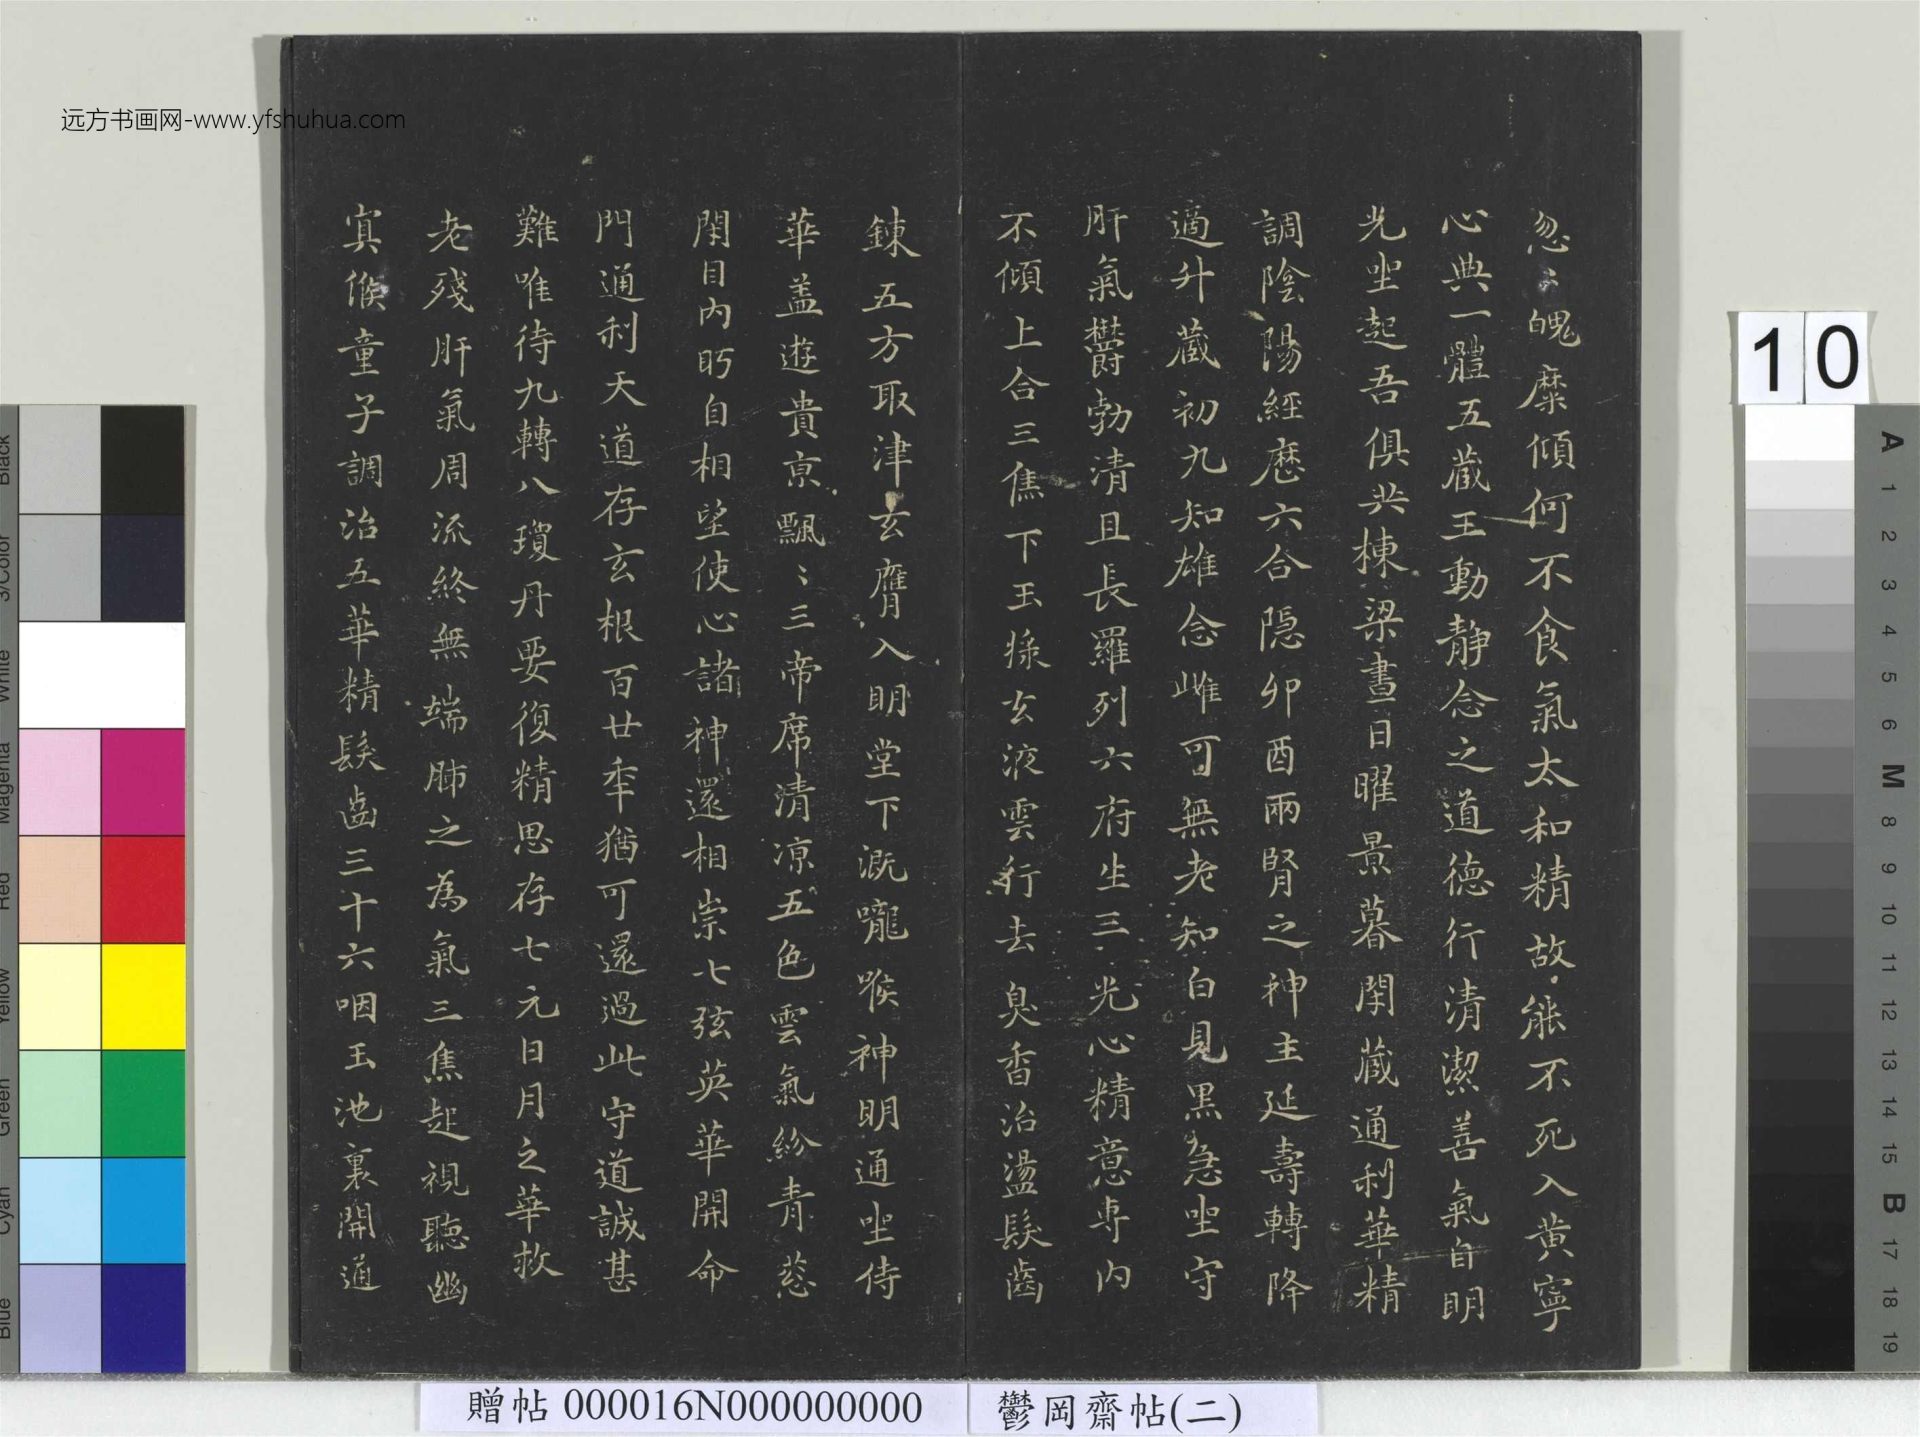 远方书画网-www.yfshuhua.com
忽之魄糜傾何不食氣太和精故能不死入黃寧
心典一體五藏王動靜念之道德行清潔善氣自明
光坐起吾俱共棟梁晝日曜景暮閑藏通利華精
調陰陽經歷六合隱卯酉兩腎之神主延壽轉降
適升藏初九知雄念雌可無老知白見黑急坐守
肝氣欝勃清且長羅列六府生三光心精意專內
不傾上合三焦下玉㨾玄液雲行去臭香治盪髮齒
鍊五方取津玄膺入明堂下溉嚨喉神明通坐侍
華盖遊貴京飄〻三帝席清涼五色雲氣紛青葱
閑目內眄自相望使心諸神還相崇七弦英華開命
門通利天道存玄根百廿年猶可還過此守道誠甚
難唯待九轉八瓊丹要復精思存七元日月之華救
老殘肝氣周流終無端肺之為氣三焦起視聽幽
冥候童子調治五華精髮齒三十六咽玉池裏開通
10
贈帖 000016N000000000
鬱岡齋帖(二)
Black
3/Color
White
Magenta
Red
Yellow
Green
Cyan
Blue
A
1
2
3
4
5
6
M
8
9
10
11
12
13
14
15
B
17
18
19